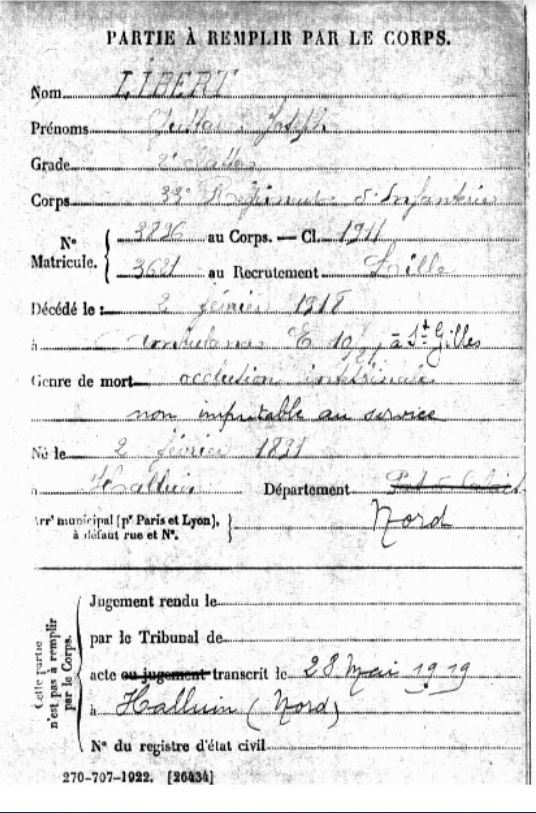 PARTIE À REMPLIR PAR LE CORPS.
Nom LIBERT
Prénoms Gustave Joseph
Grade 2e classe
Corps 33e Régiment d'Infanterie
N° Matricule. 3896 au Corps. — Cl. 1911
3621 au Recrutement Lille
Décédé le : 2 février 1918
à Ambulance à St Gilles
Genre de mort occlution intestinale
non imputable au service
Né le 2 février 1891
à Halluin Département Pas de Calais
Arrt municipal (pr Paris et Lyon), à défaut rue et N°. Nord
Cette partie n'est pas à remplir par le Corps.
Jugement rendu le
par le Tribunal de
acte ou jugement transcrit le 28 Mai 1919
à Halluin (Nord)
N° du registre d'état civil
270-707-1922. [26434]